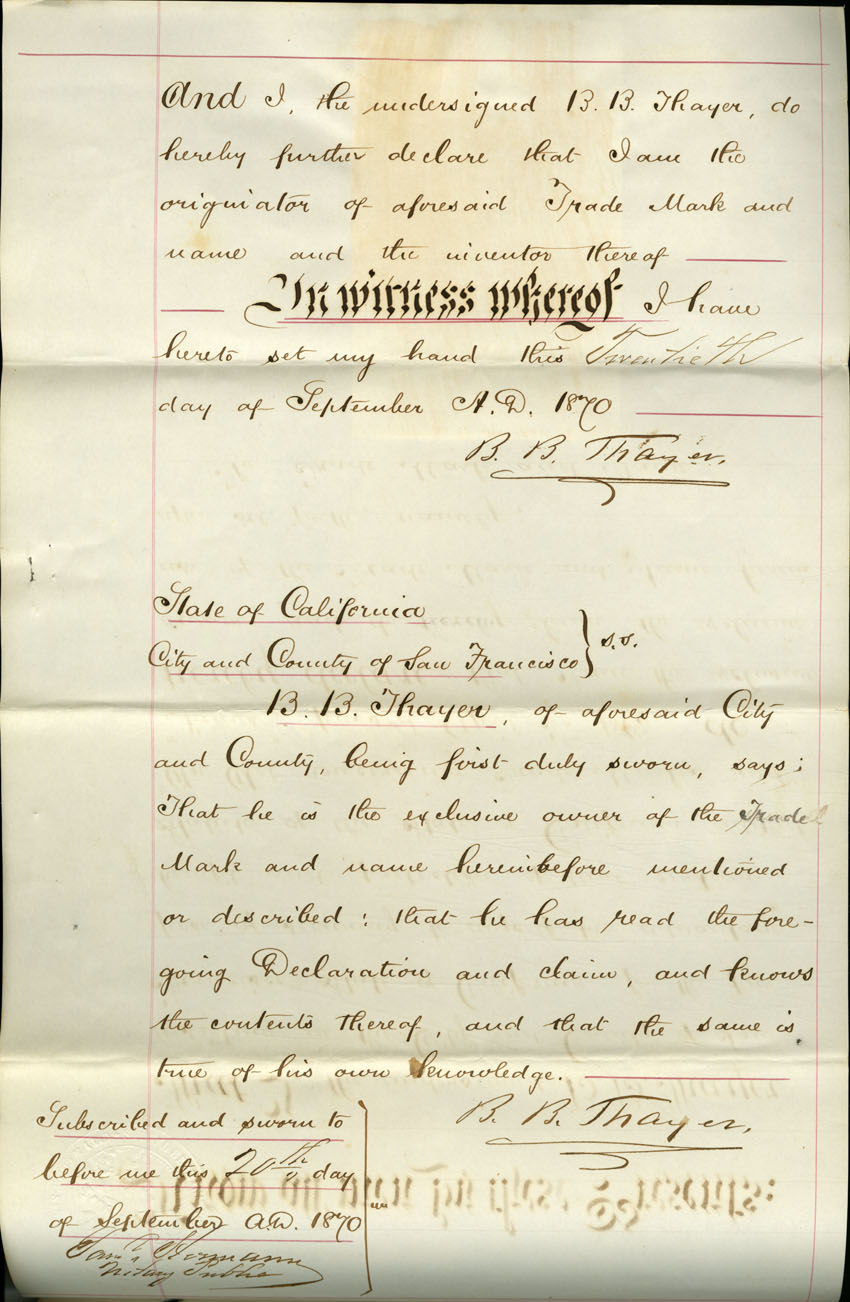 And I, the undersigned B. B. Thayer, do
hereby further declare that I am the
originator of aforesaid Trade Mark and
name and the inventor thereof
In witness whereof I have
hereto set my hand this Twentieth
day of September A.D. 1870
B. B. Thayer.
State of California
City and County of San Francisco } s.s.
B. B. Thayer, of aforesaid City
and County, being first duly sworn, says;
That he is the exclusive owner of the Trade
Mark and name hereinbefore mentioned
or described; that he has read the fore-
going Declaration and claim, and knows
the contents thereof, and that the same is
true of his own knowledge.
B. B. Thayer.
Subscribed and sworn to
before me this 20th day
of September A.D. 1870
Notary Public